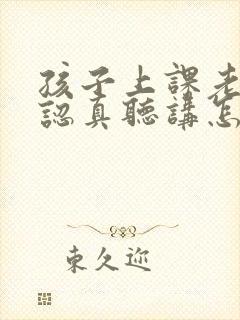 孩子上課老
認真聽講怎
東久迩